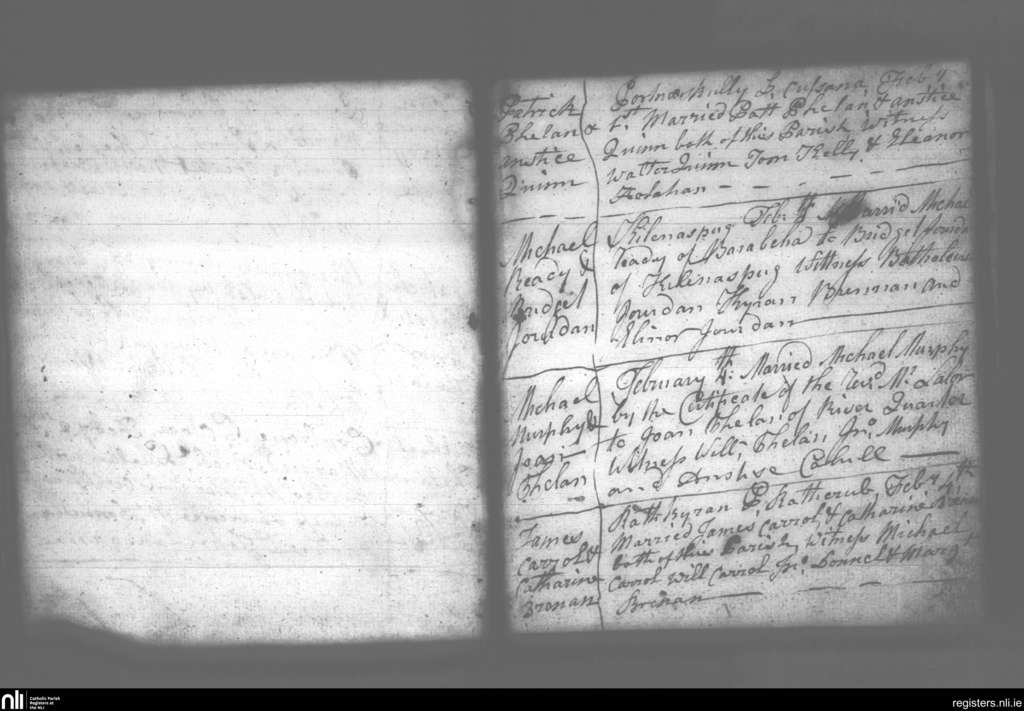 Patrick
Phelan &
Anstice
Quinn
Portnaskully L. Culsana, Feb: y
1st Married Patt Phelan & Anstice
Quinn both of this Parish Witness
Walter Quinn Tom Kelly & Eleanor
Holahan
Michael
Ready &
Bridget
Jourdan
Kilenaspug Feb: Married Michael
Ready of Barabeha to Bridget Jourdan
of Kilenaspug Wittness
Jourdan Thyran Brennan and
Elinor Jourdan
Michael
Murphy &
Joan
Phelan
February 4th: Married Michael Murphy
by the Certificate of the Revd Mr Lalor
to Joan Phelan of River Quarter
Witness Willm Phelan, Jno Murphy
and Anstise Cahill
James
Carrol &
Catharine
Bronan
Rathkyran P. Rathcrub, Feb: y 4th
Married James Carrol, & Catharine
both of this Parish, Witness Michael
Carrol Will Carrol Jno Donnel & Margt
Brenan
nli
Catholic Parish
Registers at
the NLI
registers.nli.ie